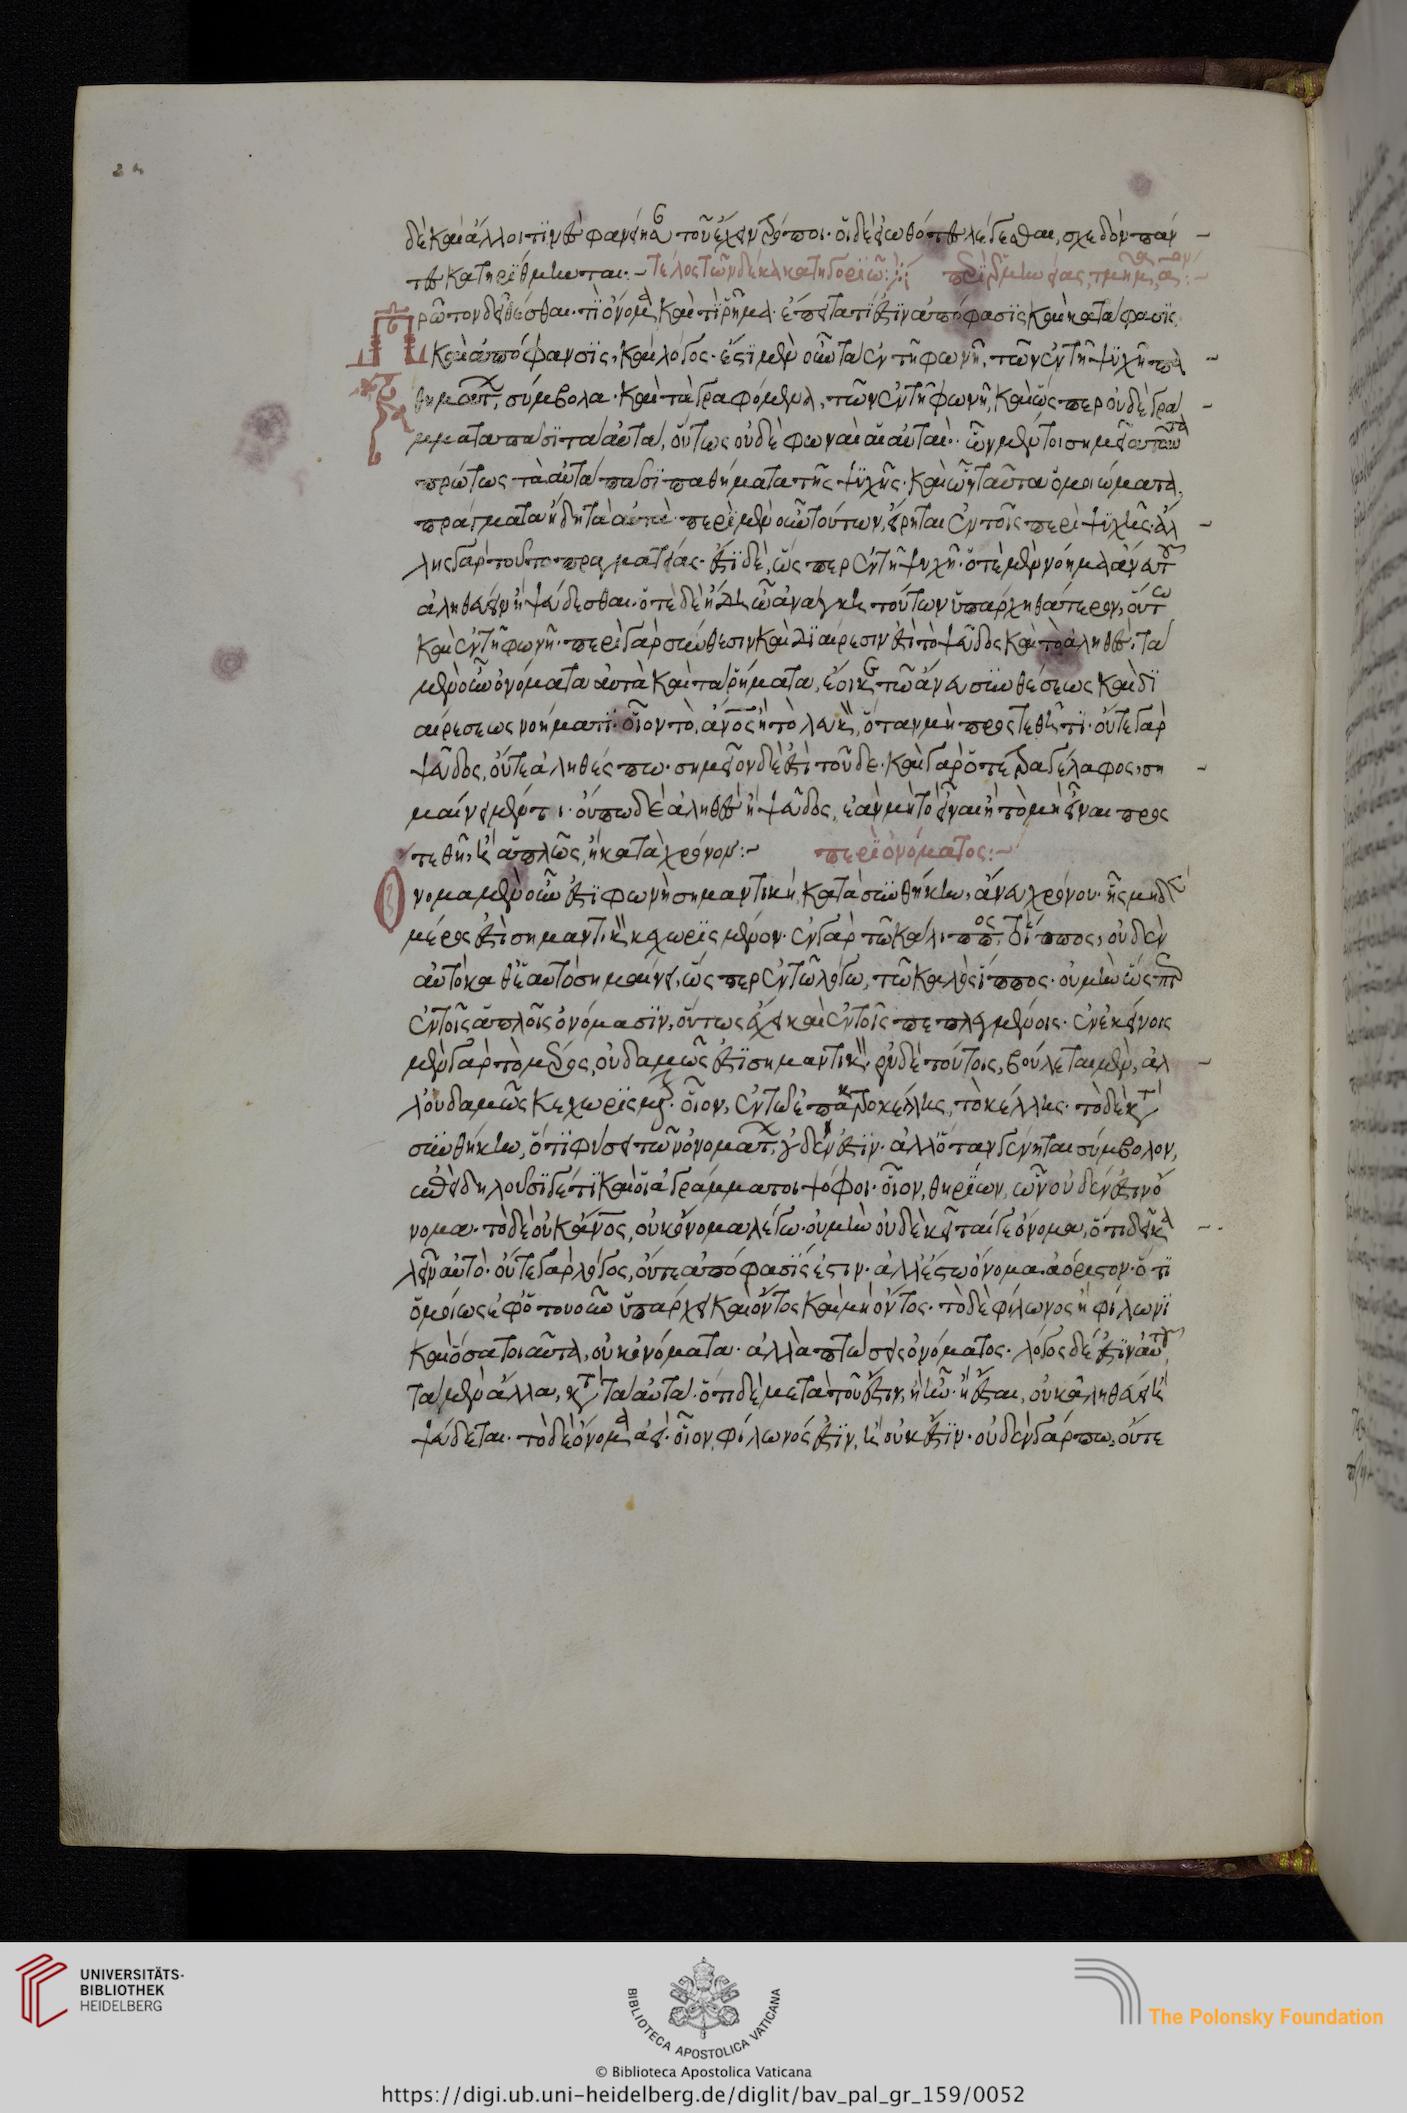 24
δὲ καὶ ἄλλοι τινὲς φανείησαν τοῦ ἔχειν τρόποι. οἱ δὲ εἰωθότες λέγεσθαι, σχεδὸν πάν
τες κατηρίθμηνται. τέλος τῶν δέκα κατηγοριῶν:
Πρῶτον δεῖ θέσθαι. τί ὄνομα, καὶ τί ῥῆμα. ἔπειτα τί ἐστιν ἀπόφασις καὶ κατάφασις,
καὶ ἀπόφανσις, καὶ λόγος. ἔστι μὲν οὖν τὰ ἐν τῇ φωνῇ, τῶν ἐν τῇ ψυχῇ πα
θημάτων, σύμβολα. καὶ τὰ γραφόμενα, τῶν ἐν τῇ φωνῇ, καὶ ὥσπερ οὐδὲ γρά
μματα πᾶσι τὰ αὐτὰ, οὕτως οὐδὲ φωναὶ αἱ αὐταί. ὧν μέντοι σημεῖα ταῦτα
πρώτως τὰ αὐτὰ πᾶσι παθήματα τῆς ψυχῆς. καὶ ὧν ταῦτα ὁμοιώματα,
πράγματα ἤδη τὰ αὐτά. περὶ μὲν οὖν τούτων, εἴρηται ἐν τοῖς περὶ ψυχῆς. ἄλ
λης γὰρ πραγματείας. ἔστι δὲ, ὥσπερ ἐν τῇ ψυχῇ. ὁτὲ μὲν νόημα ἄνευ τοῦ
ἀληθεύειν ἢ ψεύδεσθαι. ὁτὲ δὲ ἤδη ὧ ἀνάγκη τούτων ὑπάρχειν θάτερον, οὕτω
καὶ ἐν τῇ φωνῇ. περὶ γὰρ σύνθεσιν καὶ διαίρεσιν ἐστὶ τὸ ψεῦδος καὶ τὸ ἀληθές. τὰ
μὲν οὖν ὀνόματα αὐτὰ καὶ τὰ ῥήματα, ἔοικε τῷ ἄνευ συνθέσεως καὶ δι
αιρέσεως νοήματι. οἷον τὸ, ἄνος ἢ τὸ λευκὸν, ὅταν μὴ προστεθῇ τι. οὔτε γὰρ
ψεῦδος, οὔτε ἀληθές πω. σημεῖον δὲ ἐστὶ τοῦδε. καὶ γὰρ ὁ τραγέλαφος, ση
μαίνει μέν τι. οὔπω δὲ ἀληθὲς ἢ ψεῦδος, ἐὰν μὴ τὸ εἶναι ἢ τὸ μὴ εἶναι προς
τεθῇ, ἢ ἁπλῶς, ἢ κατὰ χρόνον: περὶ ὀνόματος:
Ὄνομα μὲν οὖν ἐστὶ φωνὴ σημαντικὴ κατὰ συνθήκην, ἄνευ χρόνου. ἧς μηδὲν
μέρος ἐστὶ σημαντικὸν κεχωρισμένον. ἐν γὰρ τῷ κάλιππος, τὸ ἵππος, οὐδὲν
αὐτὸ καθ' ἑαυτὸ σημαίνει, ὥσπερ ἐν τῷ λόγω, τῶ καλὸς ἵππος. οὐ μὴν ὥσπερ
ἐν τοῖς ἁπλοῖς ὀνόμασιν, οὕτως ἔχει καὶ ἐν τοῖς πεπλεγμένοις. ἐν ἐκείνοις
μὲν γὰρ τὸ μέρος, οὐδαμῶς ἐστὶ σημαντικόν. ἐν δὲ τούτοις, βούλεται μὲν, ἀλ
λ' οὐδαμῶς κεχωρισμένον. οἷον, ἐν τῶ ἐπακτροκέλης, τὸ κέλης. τὸ δὲ κατὰ
συνθήκην, ὅτι φύσει τῶν ὀνομάτων, οὐδέν ἐστιν. ἀλλ' ὅταν γένηται σύμβολον,
ἐπεὶ δηλοῦσί γέ τι καὶ οἱ ἀγράμματοι ψόφοι. οἷον, θηρίων, ὧν οὐδέν ἐστιν ὄ
νομα. τὸ δὲ οὐκ ἄνος, οὐκ ὄνομα λέγω. οὐ μὴν οὐδὲ κεῖταί γε ὄνομα, ὅτι δεῖ κα
λεῖν αὐτό. οὔτε γὰρ λόγος, οὔτε ἀπόφασίς ἐστιν. ἀλλ' ἔστω ὄνομα ἀόριστον. ὅτι
ὁμοίως ἐφ' ὁτουοῦν ὑπάρχει καὶ ὄντος καὶ μὴ ὄντος. τὸ δὲ φίλωνος ἢ φίλωνι
καὶ ὅσα τοιαῦτα, οὐκ ὀνόματα. ἀλλὰ πτώσεις ὀνόματος. λόγος δέ ἐστιν αὐτοῦ,
τὰ μὲν ἄλλα, κατὰ τὰ αὐτά. ὅτι δὲ μετὰ τοῦ ἔστιν, ἢ ἦν. ἢ ἔσται, οὐκ ἀληθεύει ἢ
ψεύδεται. τὸ δὲ ὄνομα ἀεί. οἷον, φίλωνός ἐστιν, ἢ οὐκ ἔστιν. οὐδὲν γάρ πω, οὔτε
UNIVERSITÄTS-
BIBLIOTHEK
HEIDELBERG
BIBLIOTECA APOSTOLICA VATICANA
© Biblioteca Apostolica Vaticana
The Polonsky Foundation
https://digi.ub.uni-heidelberg.de/diglit/bav_pal_gr_159/0052